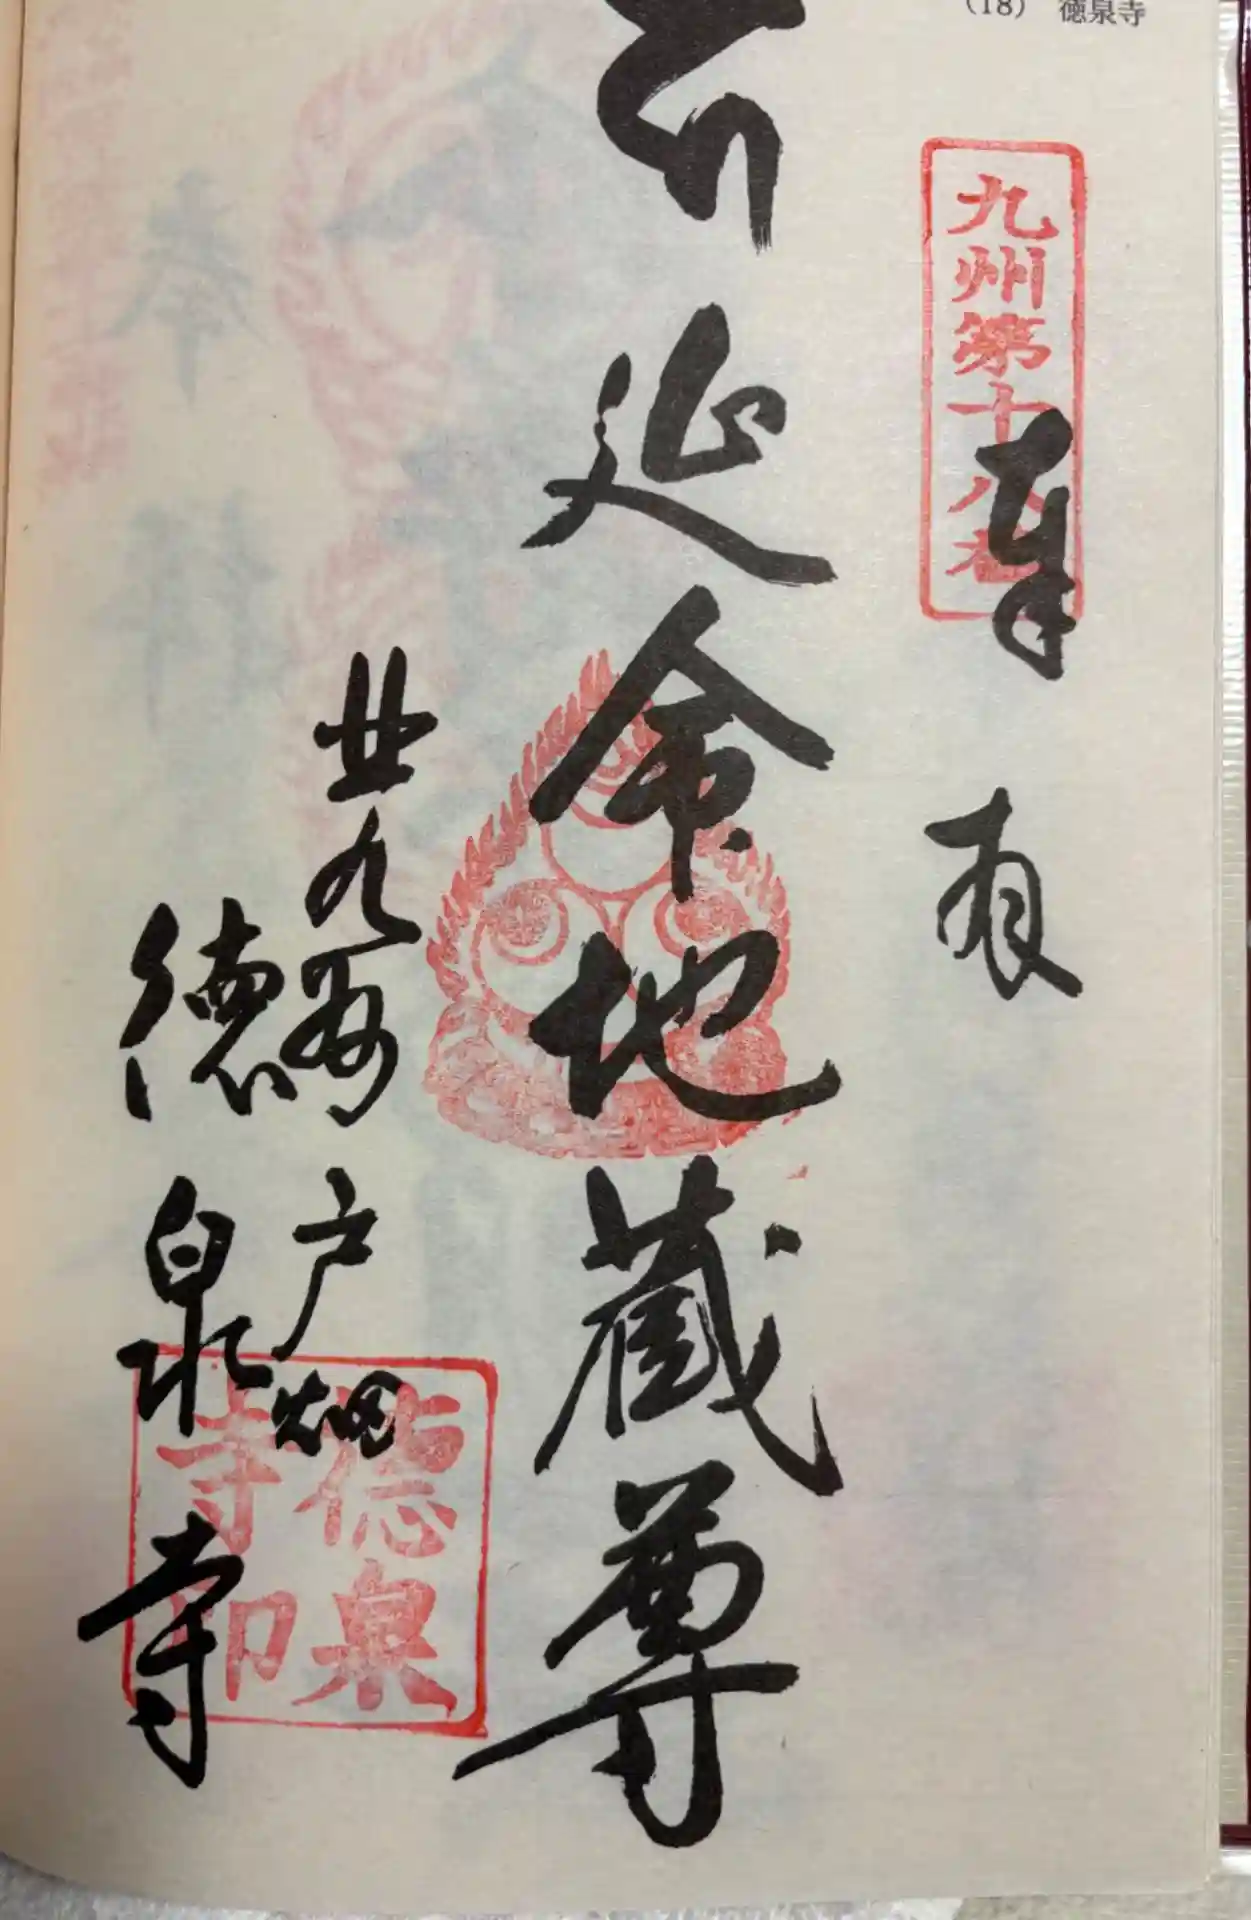 (18) 徳泉寺
九州第十八番
奉
延命地蔵尊
北九州 戸畑
徳泉寺
徳泉
寺印